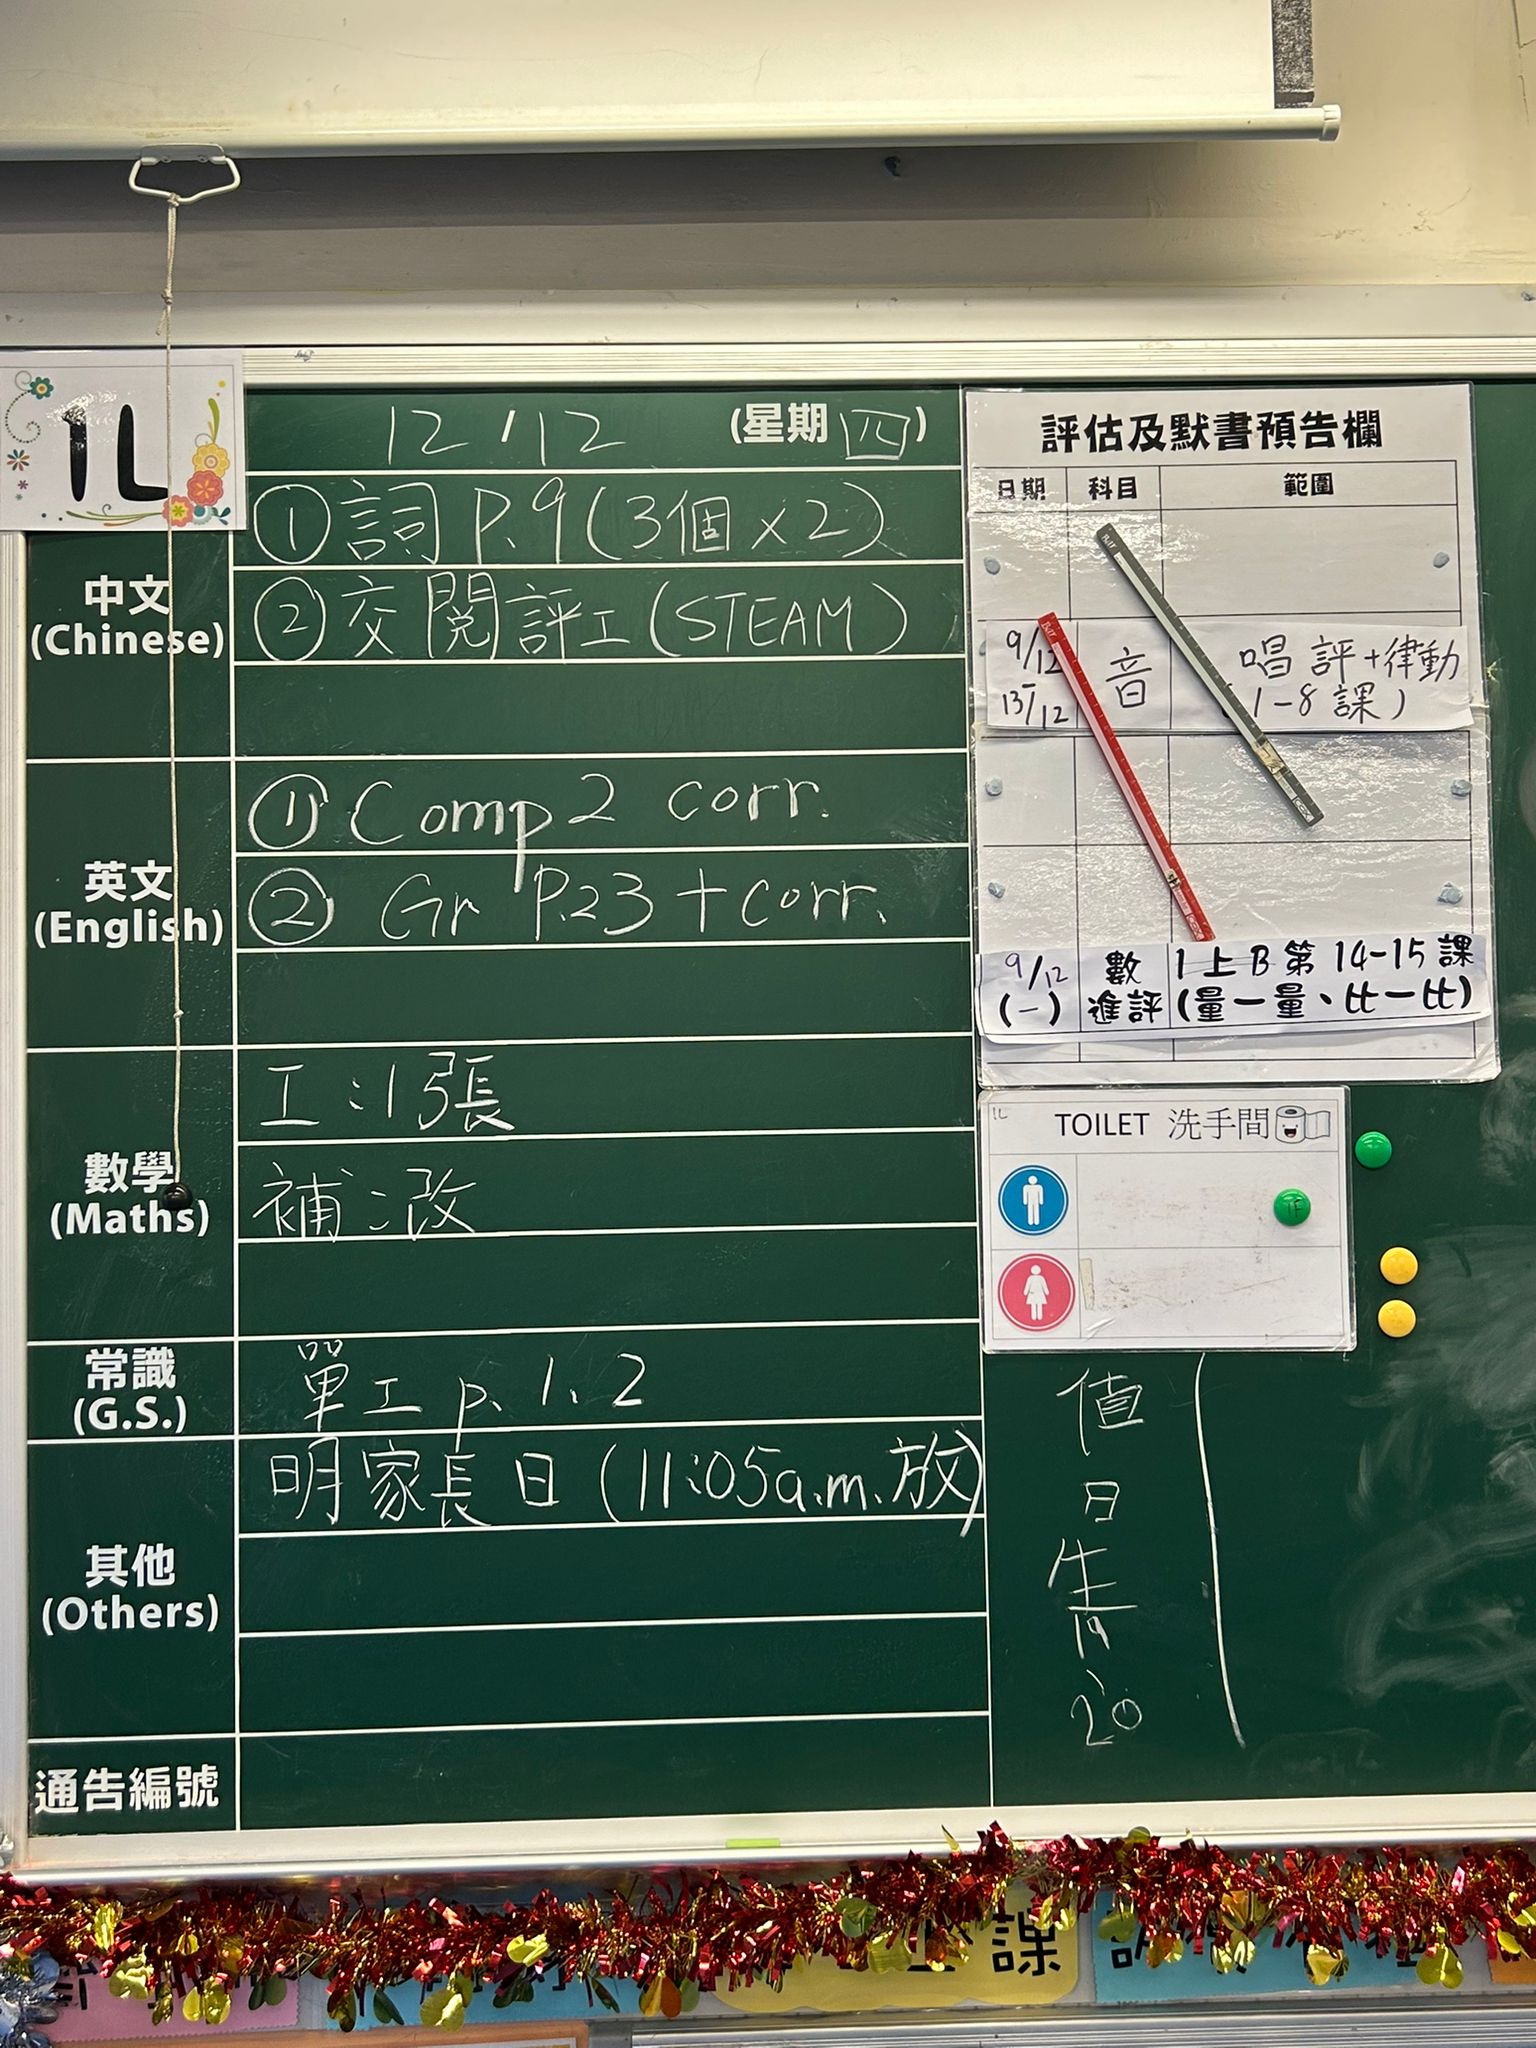 1L
12/12 (星期四)
中文
(Chinese)
① 詞 P.9 (3個 x 2)
② 交閱評工 (STEAM)
英文
(English)
① Comp 2 corr.
② Gr P.23 + corr.
數學
(Maths)
工:1 5張
補:改
常識
(G.S.)
單工 p. 1、2
其他
(Others)
明家長日 (11:05a.m.放)
通告編號
評估及默書預告欄
日期 科目 範圍
9/12 - 13/12 音 唱評+律動
1-8課)
9/12 數 1上B第14-15課
(一) 進評 (量一量、比一比)
1L
TOILET 洗手間
值
日
生
19
20
課